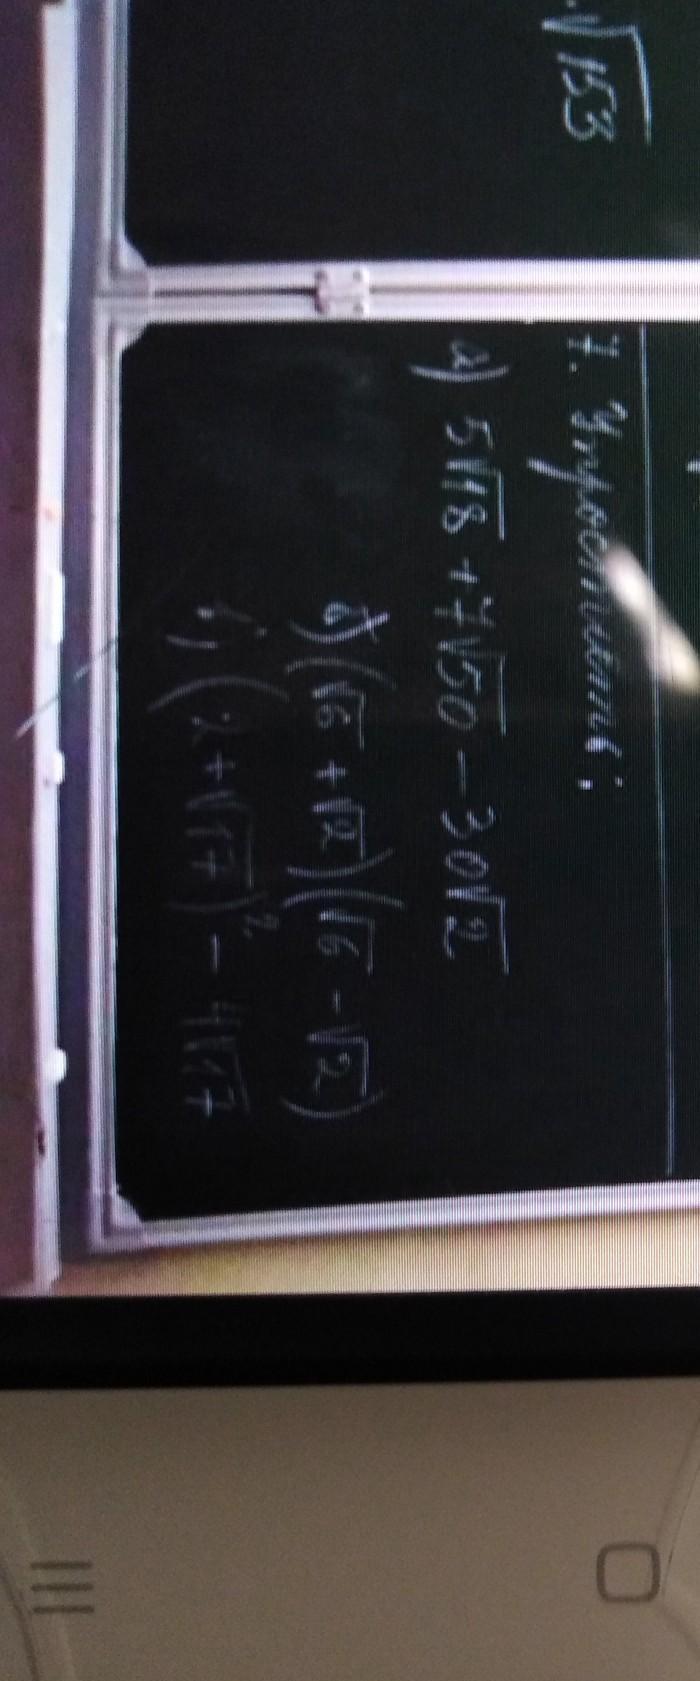 √153
7. Упростить:
а) 5√18 + 7√50 - 30√2
б) (√6 + √2)(√6 - √2)
в) (2 + √17)² - 4√17